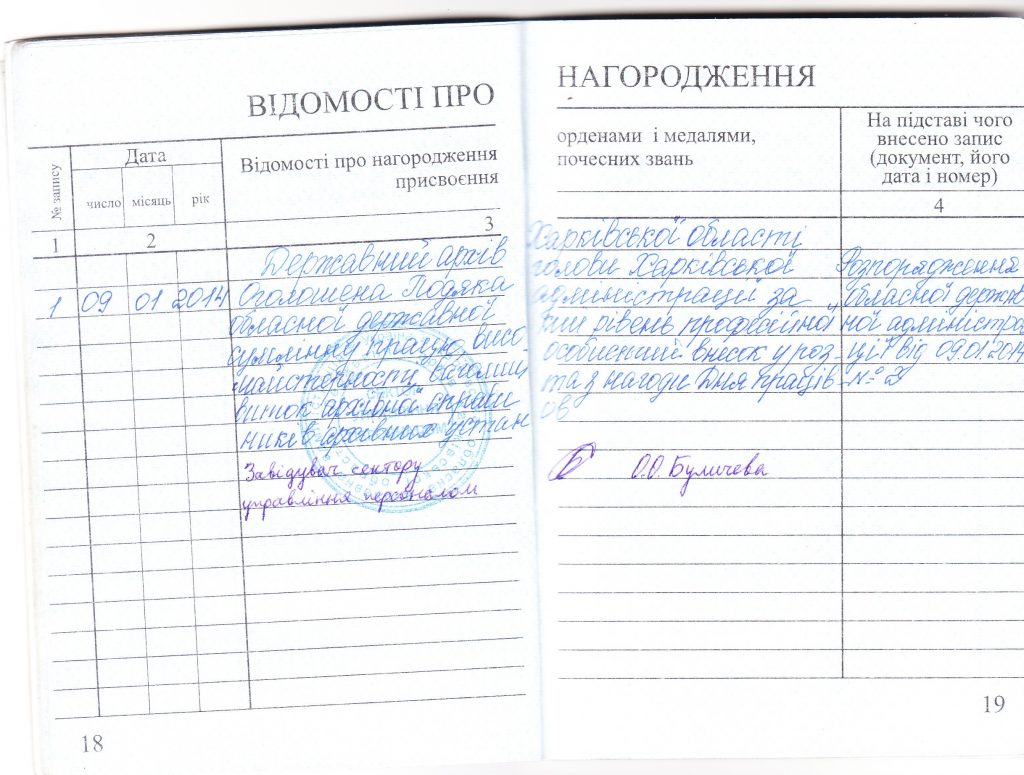 ВІДОМОСТІ ПРО НАГОРОДЖЕННЯ
№ запису
Дата
число місяць рік
Відомості про нагородження
присвоєння
орденами і медалями,
почесних звань
На підставі чого
внесено запис
(документ, його
дата і номер)
1 2 3 4
Державний архів Харківської області
1 09 01 2014 Оголошена Подяка голови Харківської Розпорядження
обласної державної адміністрації за обласної держав
сумлінну працю, висо кий рівень професійної ної адміністра
майстерності, вагомий особистий внесок у роз- ції від 09.01.2014
виток архівної справи та з нагоди Дня праців- №2
ників архівних установ
Завідувач сектору
управління персоналом О.О. Буличева
18
19